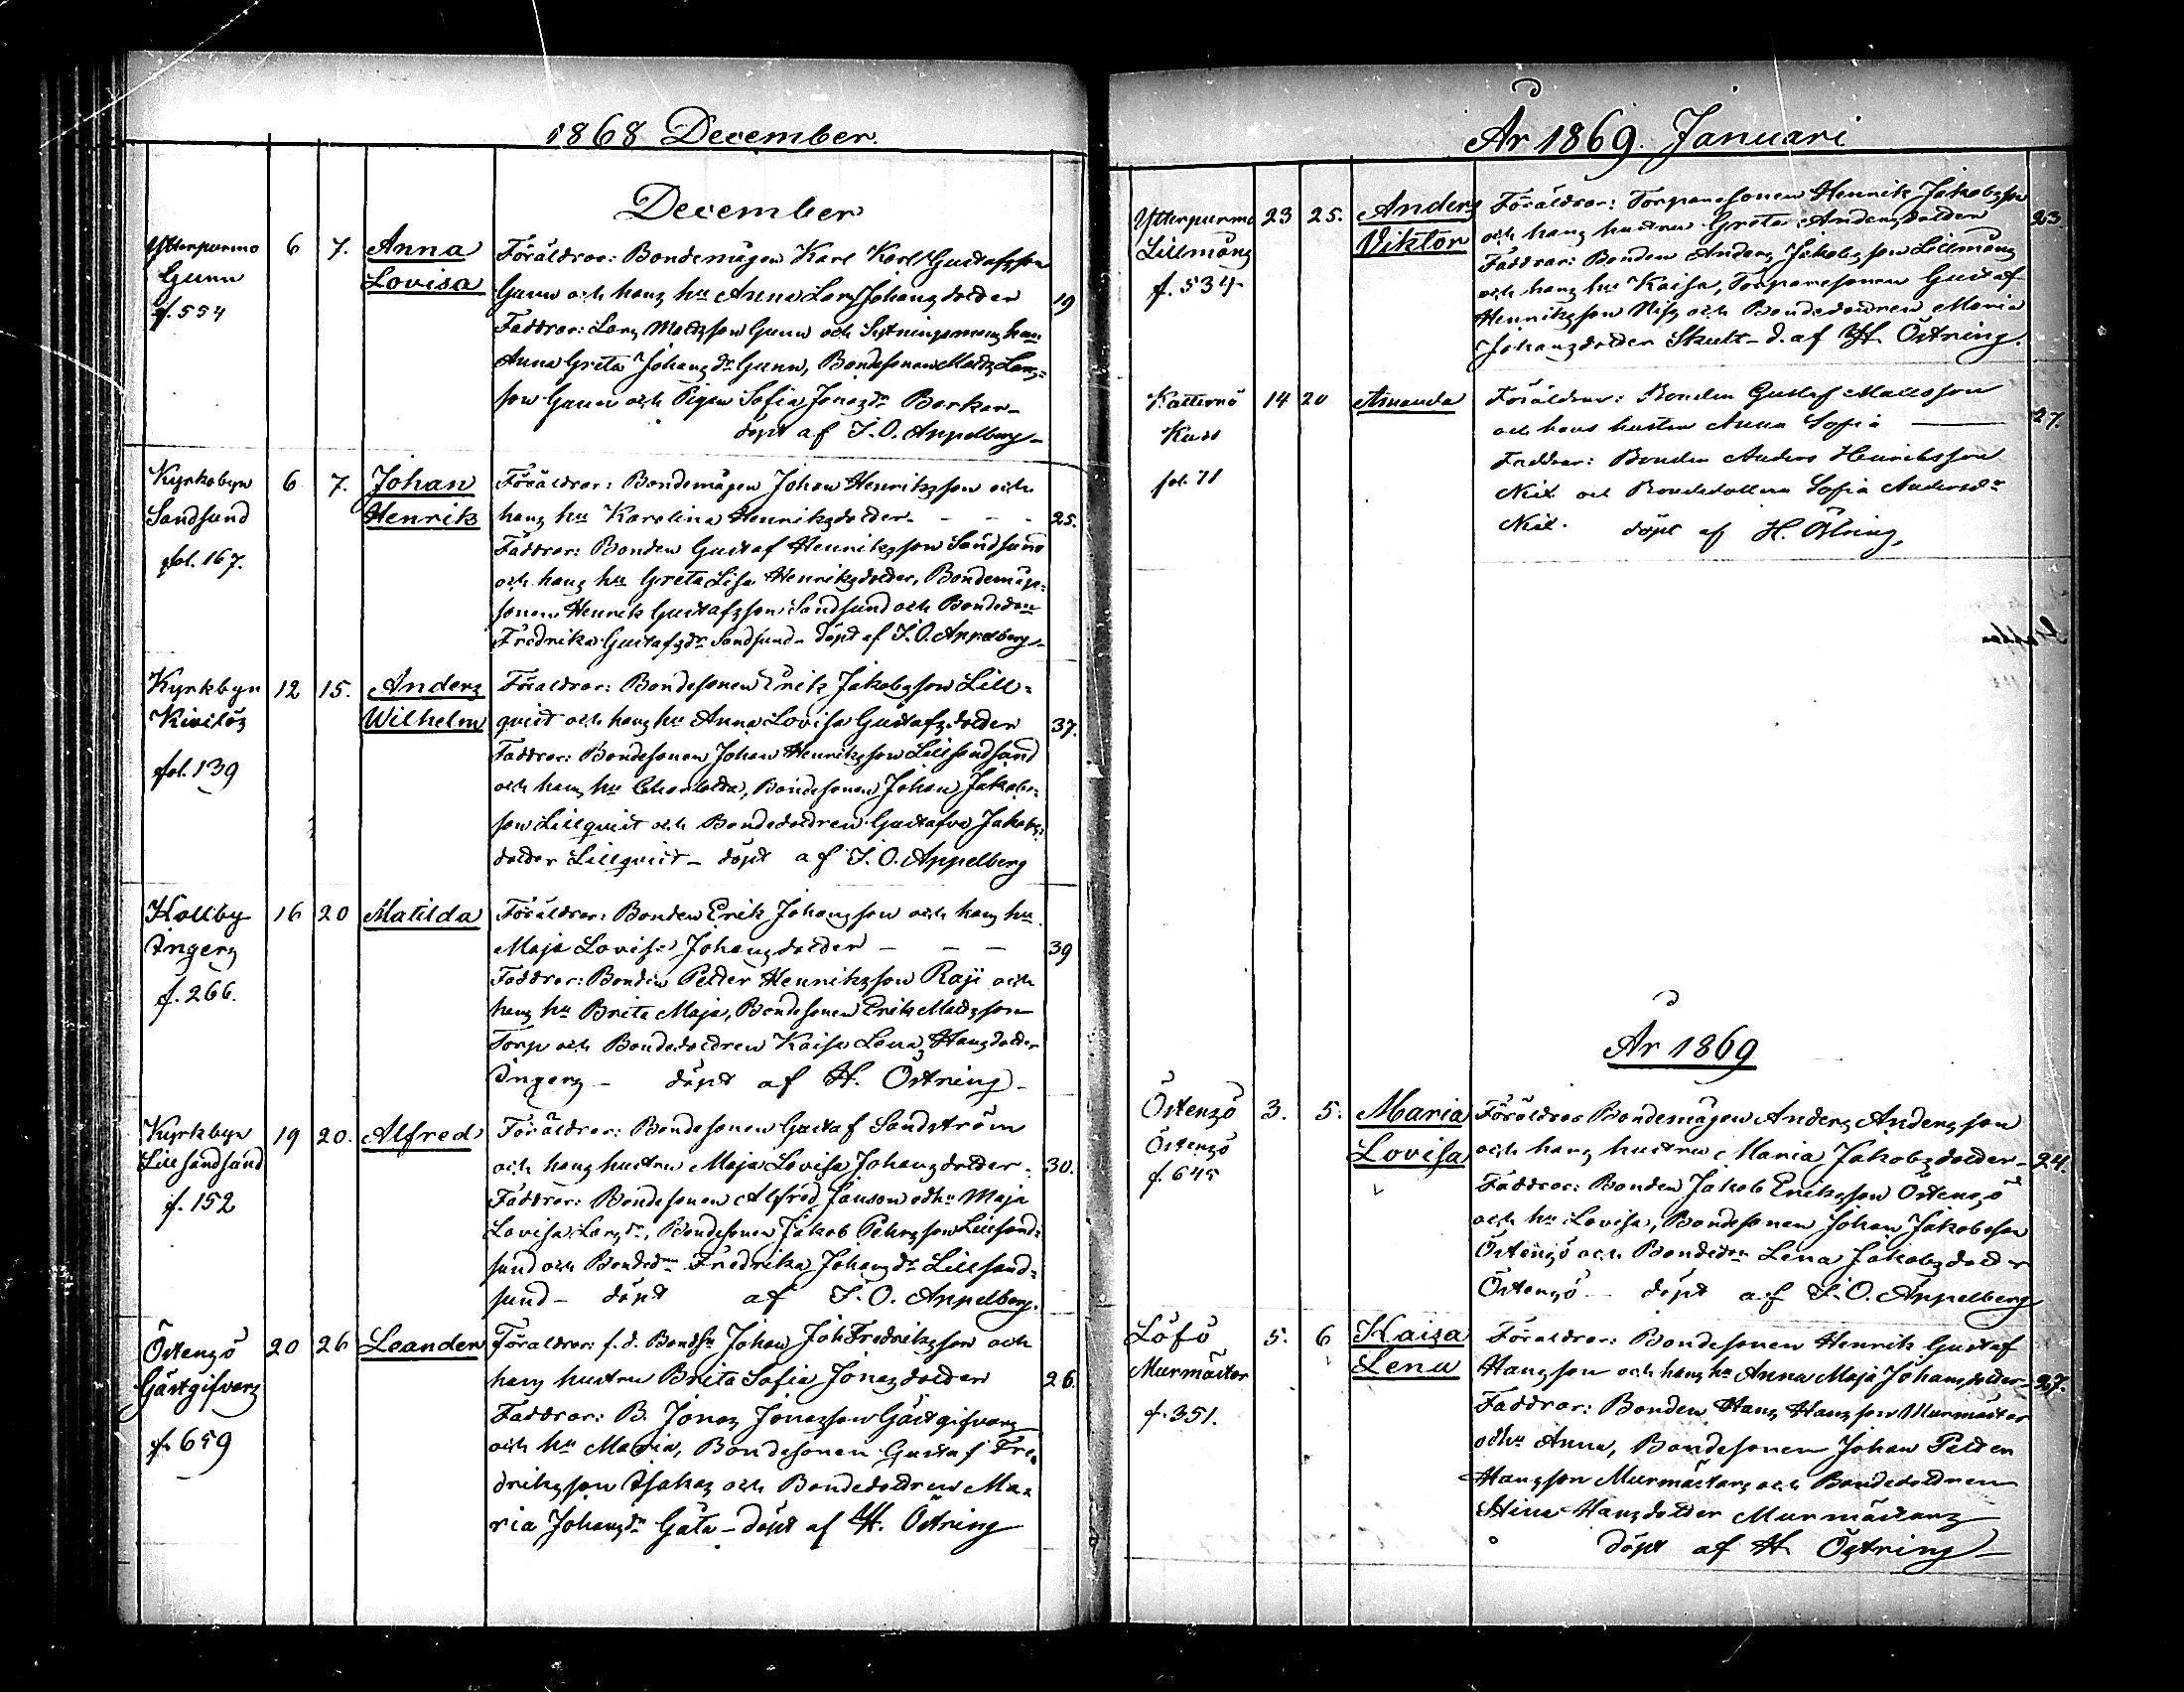 1868 December.
December
Ytterpurmo 6 7. Anna
Gunn Lovisa
f. 554
Föräldrar: Bondemågen Karl Karl Gustafsson
Gunn och hans hu Anna Lars Johansdotter 19
Faddrar: Lars Mattsson Gunn och Sytningsmans hu
Anna Greta Johansdr Gunn, Bondesonen Matts Lars=
son Gunn och Pigan Sofia Jonasdr Barkar-
döpt af J. O. Appelberg-
Kyrkobyn 6 7. Johan
Sandsund Henrik
fol. 167.
Föräldrar: Bondemågen Johan Henriksson och
hans hu Karolina Henriksdotter. - - - 25.
Faddrar: Bonden Gustaf Henriksson Sandsund
och hans hu Greta Lisa Henriksdotter, Bondemåg=
sonen Henrik Gustafsson Sandsund och Bondedon
Fredrika Gustafsdr Sandsund- döpt af J. O. Appelberg-
Kyrkbyn 12 15. Anders
Kivilös Wilhelm
fol. 139
Föräldrar: Bondesonen Erik Jakobsson Lill=
qvist och hans hu Anna Lovisa Gustafsdotter 37.
Faddrar: Bondesonen Johan Henriksson Lillsandsund
och hans hu Charlotta, Bondesonen Johan Jakobs=
son Lillqvist och Bondedottren Gustafva Jakobs=
dotter Lillqvist- döpt af J. O. Appelberg
Kållby 16 20 Matilda
Ingers
f. 266.
Föräldrar: Bonden Erik Johansson och hans hu
Maja Lovisa Johansdotter - - - 39
Faddrar: Bonden Petter Henriksson Raji och
hans hu Brita Maja, Bondesonen Erik Mattsson
Torp och Bondedottren Kaisa Lena Hansdotter
Ingers - döpt af H. Östring-
Kyrkbyn 19 20. Alfred
Lillsandsund
f. 152
Föräldrar: Bondesonen Gustaf Sandström
och hans hustru Maja Lovisa Johansdotter- 30.
Faddrar: Bondesonen Alfred Janson o dhu Maja
Lovisa Larsdr, Bondesonen Jakob Pehrsson Lillsand=
sund och Bondedrn Fredrika Johansdr Lillsand=
sund- döpt af J. O. Appelberg.
Östensö 20 26 Leander
Gästgifvars
f. 659
Föräldrar: f.d. Bondsn Johan Joh Fredriksson och
hans hustru Brita Sofia Jonasdotter 26.
Faddrar: B. Jonas Jonasson Gästgifvars
och hu Maria, Bondesonen Gustaf Fre=
driksson Isakas och Bondedottren Ma=
ria Johansdr Gåta- döpt af H. Östring
År 1869. Januari
Ytterpurmo 23 25. Anders
Lillmåns Viktor
f. 534
Föräldrar: Torparesonen Henrik Jakobsson
och hans hustru Greta Andersdotter 23.
Faddrar: Bonden Anders Jakobsson Lillmåns
och hans hu Kaisa, Torparesonen Gustaf
Henriksson Nifs och Bondedottren Maria
Johansdotter Skult- d. af H. Östring.
Katternö 14 20 Amanda
Knus
fol. 71
Föräldrar: Bonden Gustaf Mattsson
och hans hustru Anna Sofia 27.
Faddrar: Bonden Anders Henriksson
Nix och Bondedottren Sofia Andersdr
Nix. döpt af H. Östring,
År 1869
Östensö 3. 5. Maria
Östensö Lovisa
f. 645
Föräldrar Bondemågen Anders Andersson
och hans hustru Maria Jakobsdotter- 24.
Faddrar: Bonden Jakob Eriksson Östensö
och hu Lovisa, Bondesonen Johan Jakobsson
Östensö och Bondedrn Lena Jakobsdotter
Östensö - döpt af J. O. Appelberg
Löfö 5. 6 Kaisa
Murmästar Lena
f. 351.
Föräldrar: Bondesonen Henrik Gustaf
Hansson och hans hu Anna Maja Johansdotter- 27.
Faddrar: Bonden Hans Hansson Murmästar
o dhu Anna, Bondesonen Johan Petter
Hansson Murmästars och Bondedottren
Stina Hansdotter Murmästars
döpt af H. Östring-